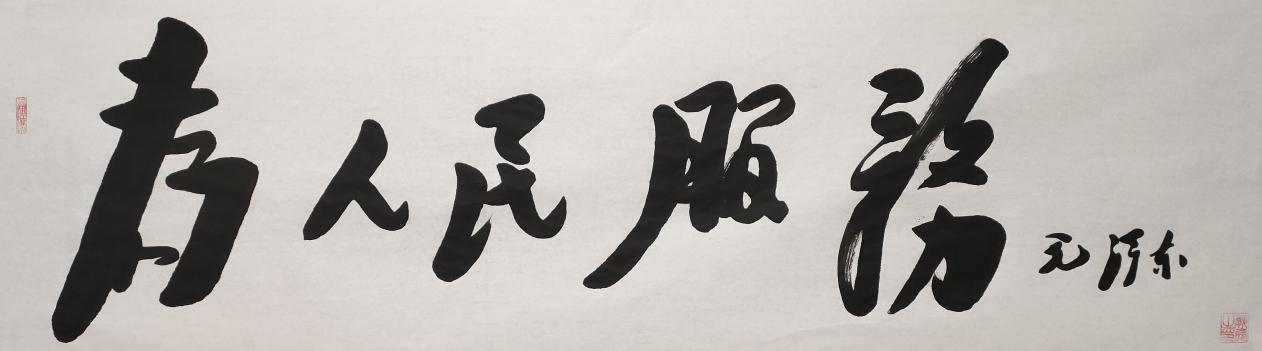 為人民服務 毛泽东